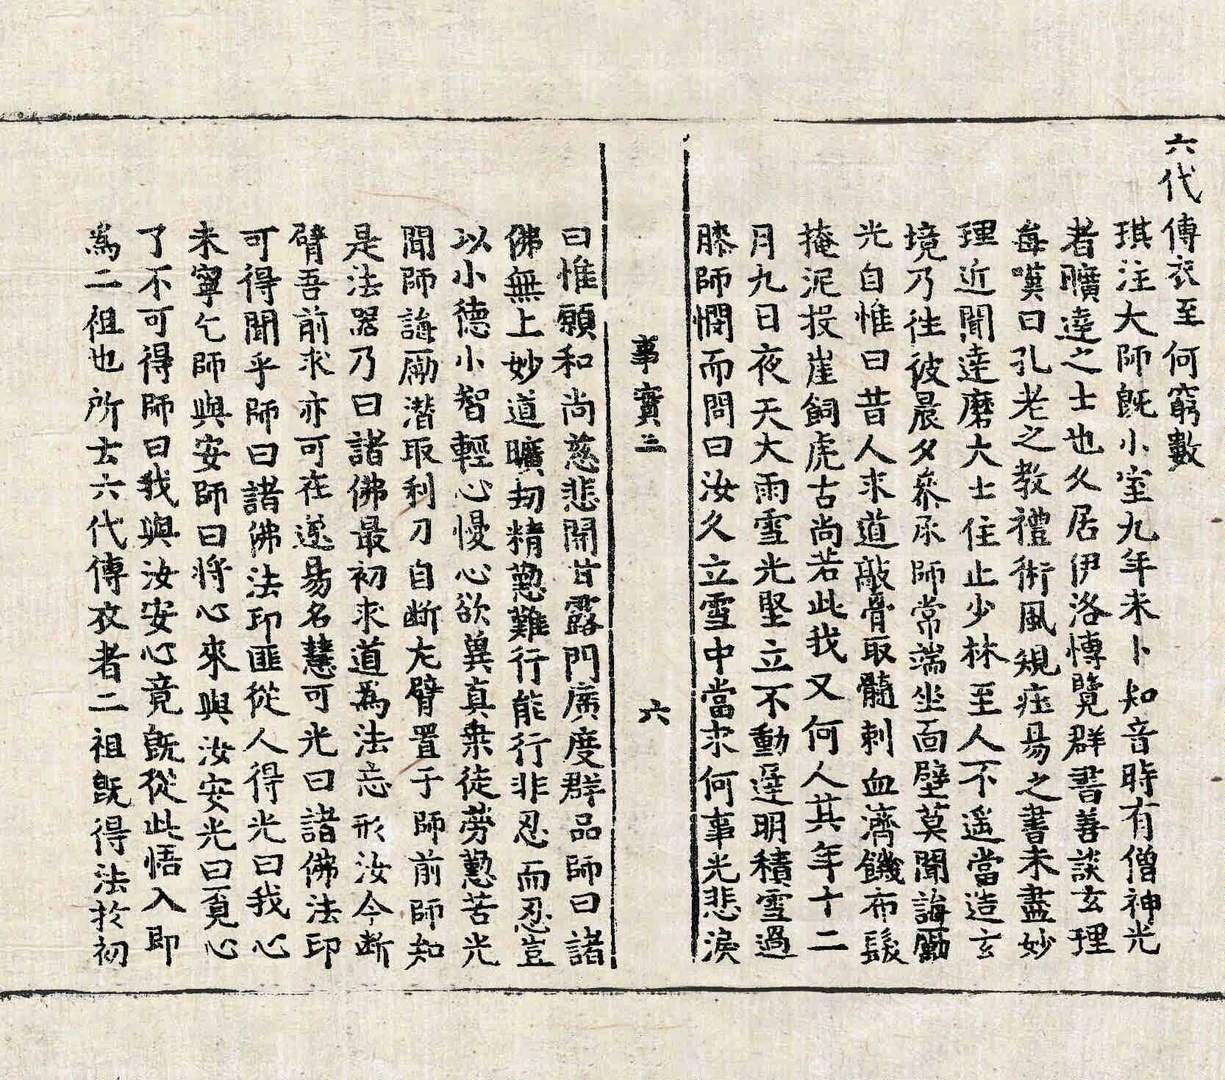 六代傳衣至何窮數
琪注大師旣小室九年未卜知音時有僧神光
者曠達之士也久居伊洛博覽群書善談玄理
每嘆曰孔老之教禮術風規莊易之書未盡妙
理近聞達磨大士住止少林至人不遥當造玄
境乃往彼晨夕叅承師常端坐面壁莫聞誨勵
光自惟曰昔人求道敲骨取髓刺血濟饑布髮
掩泥投崖飼虎古尚若此我又何人其年十二
月九日夜天大雨雪光堅立不動遲明積雪過
膝師憫而問曰汝久立雪中當求何事光悲淚
事實三
六
曰惟願和尚慈悲開甘露門廣度群品師曰諸
佛無上妙道曠劫精懃難行能行非忍而忍豈
以小德小智輕心慢心欲冀真乗徒勞懃苦光
聞師誨勵潛取利刀自断左臂置于師前師知
是法器乃曰諸佛最初求道爲法忘形汝今断
臂吾前求亦可在遂易名慧可光曰諸佛法印
可得聞乎師曰諸佛法印匪從人得光曰我心
未寧乞師與安師曰将心來與汝安光曰覔心
了不可得師曰我與汝安心竟旣從此悟入即
爲二祖也所言六代傳衣者二祖旣得法於初